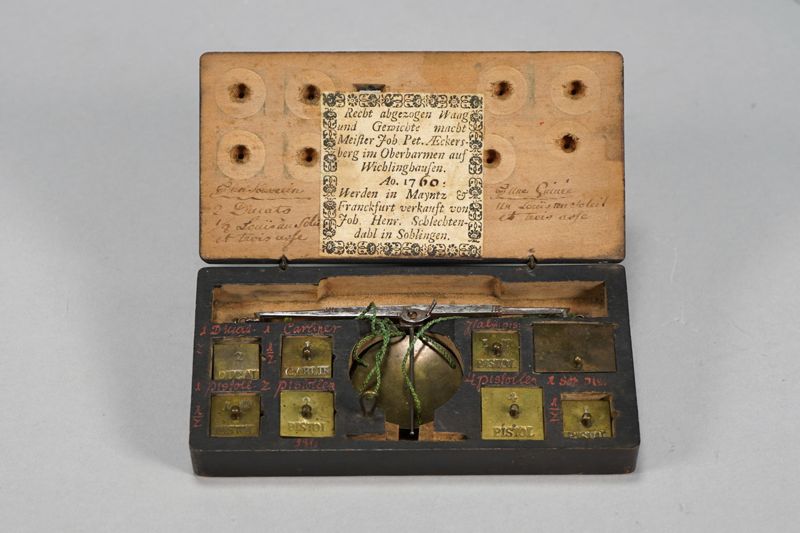 Recht abgezogen Waag
und Gewichte macht
Meister Joh Pet. Æckers-
berg im Oberbarmen auf
Wichlinghausen.
Ao. 1760.
Werden in Mayntz &
Franckfurt verkauft von
Joh. Henr. Schlechten-
dahl in Sohlingen.
2 Ducats
1/2 Louis au Solei
et trois asse
D'une Guinée
un Louis au Soleil
et trois asse
1 Ducat. 1
Carliner
1/2
2
DUCAT
1
CARLIN
PISTOL
1 pistole. 2
pistoles
4 pistoles
1/2
PISTOL
2
PISTOL
PISTOL
1/2
PISTOL